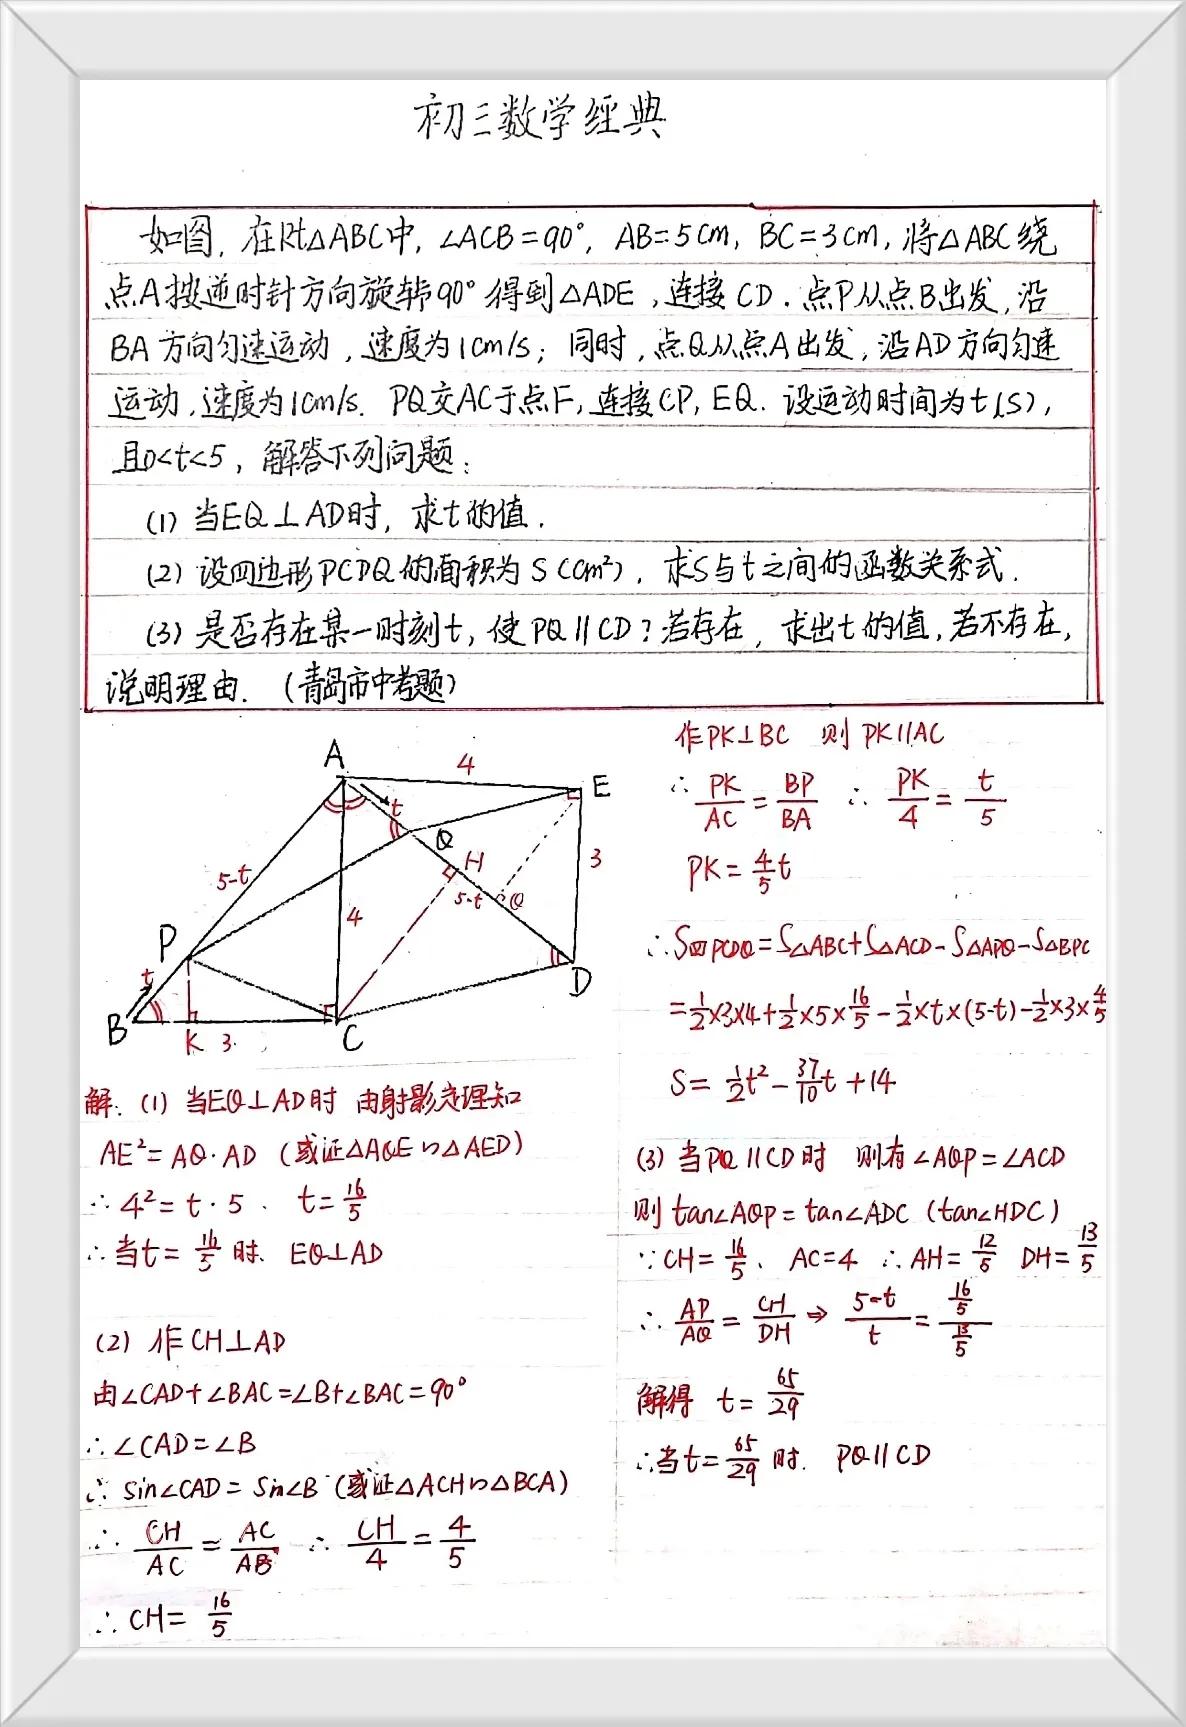 初三数学经典
如图，在Rt△ABC中，∠ACB=90°，AB=5cm，BC=3cm，将△ABC绕
点A按逆时针方向旋转90°得到△ADE，连接CD．点P从点B出发，沿
BA方向匀速运动，速度为1cm/s；同时，点Q从点A出发，沿AD方向匀速
运动，速度为1cm/s．PQ交AC于点F，连接CP，EQ．设运动时间为t(s)，
且0<t<5，解答下列问题：
(1) 当EQ⊥AD时，求t的值．
(2) 设四边形PCDQ的面积为S(cm²)，求S与t之间的函数关系式．
(3) 是否存在某一时刻t，使PQ∥CD？若存在，求出t的值，若不存在，
说明理由．（青岛市中考题）
A
4
E
t
Q
H
3
5-t
5-t
Q
4
P
D
t
B
K
3
C
解：(1) 当EQ⊥AD时 由射影定理知
AE²=AQ·AD （或证△AQE∽△AED）
∴ 4²=t·5． t=16/5
∴当t=16/5时． EQ⊥AD
(2) 作CH⊥AD
由∠CAD+∠BAC=∠B+∠BAC=90°
∴∠CAD=∠B
∴ sin∠CAD=sin∠B （或证△ACH∽△BCA）
∴ CH/AC=AC/AB ∴ CH/4=4/5
∴ CH=16/5
作PK⊥BC 则PK∥AC
∴ PK/AC=BP/BA ∴ PK/4=t/5
PK=4/5t
∴S四PCDQ=S△ABC+S△ACD-S△APQ-S△BPC
=1/2×3×4+1/2×5×16/5-1/2×t×(5-t)-1/2×3×4/5
S=1/2t²-37/10t+14
(3) 当PQ∥CD时 则有∠AQP=∠ACD
则tan∠AQP=tan∠ADC (tan∠HDC)
∵CH=16/5、AC=4 ∴AH=12/5 DH=13/5
∴ AP/AQ=CH/DH ⇒ 5-t/t=16/5/13/5
解得 t=65/29
∴当t=65/29时． PQ∥CD